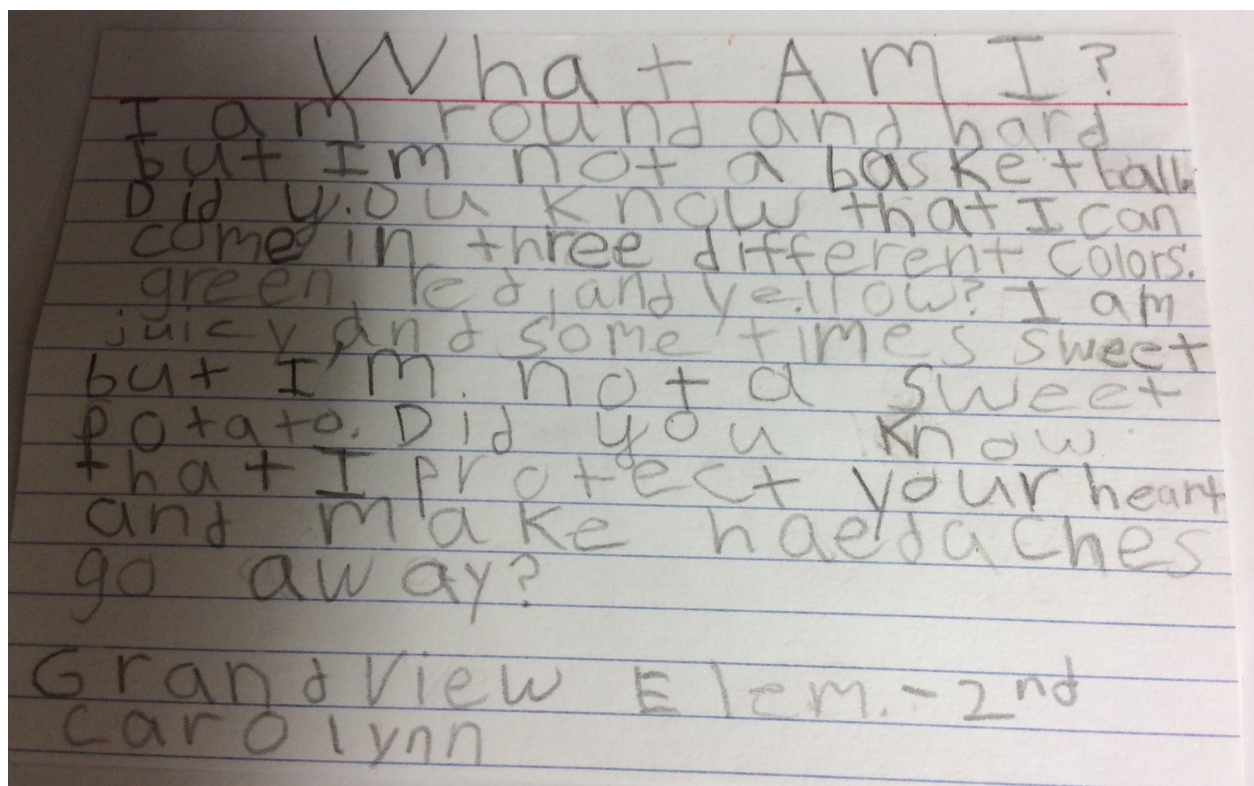 What Am I?
I am round and hard
but Im not a basketball.
Did you know that I can
come in three different colors.
green, red, and yellow? I am
juicy and some times sweet
but I'm not a sweet
potato. Did you know
that I protect your heart
and make haedaches
go away?
Grandview Elem. - 2nd
Carolynn